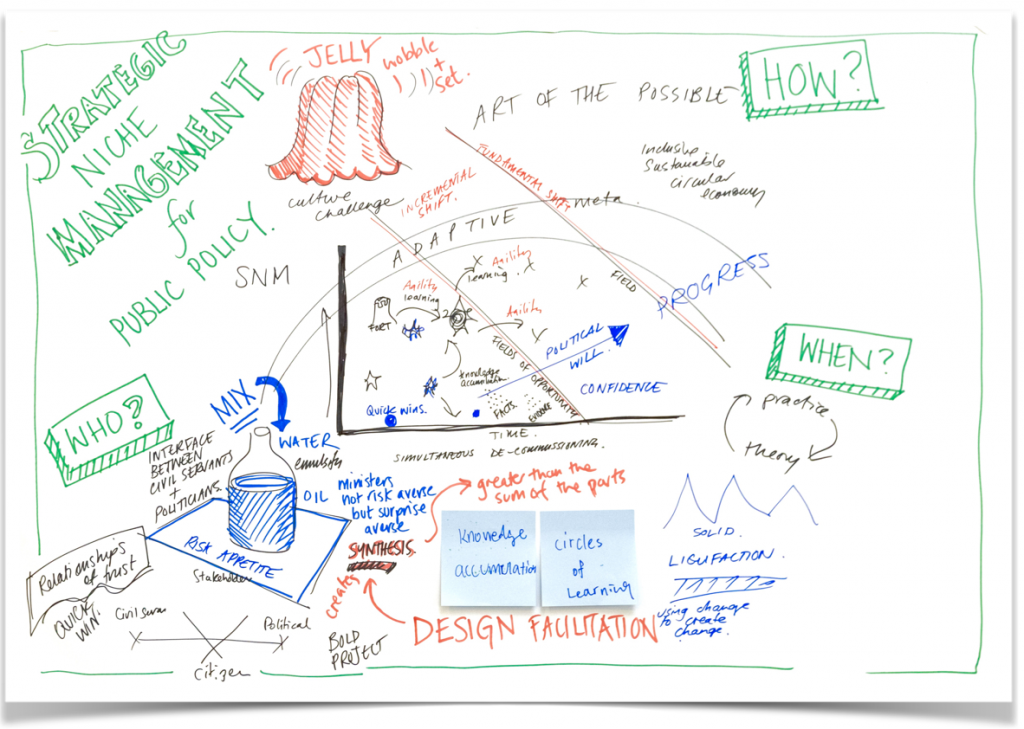 STRATEGIC
NICHE
MANAGEMENT
for
PUBLIC POLICY.
JELLY
wobble
+
set.
culture
challenge
ART OF THE POSSIBLE
HOW?
Inclusive
Sustainable
circular
economy
FUNDAMENTAL SHIFT
INCREMENTAL
SHIFT.
meta.
ADAPTIVE
SNM
Agility
learning
Agility
learning
Agility
FORT
FIELD
PROGRESS
FIELDS OF OPPORTUNITY
POLITICAL
WILL.
CONFIDENCE
knowledge
accumulation
Quick wins.
FACTS
EVIDENCE
TIME.
SIMULTANEOUS DE-COMMISSIONING.
WHEN?
practice
theory
WHO?
MIX
WATER
emulsify
OIL
INTERFACE
BETWEEN
CIVIL SERVANTS
+
POLITICIANS.
RISK APPETITE
Stakeholder
ministers
not risk averse
but surprise
averse
greater than the
sum of the parts
SYNTHESIS
creates
Knowledge
accumulation
Circles
of
Learning
SOLID.
LIQUFACTION.
using change
to create
change.
Relationships
of trust
QUICK
WIN.
Political
Citizen
BOLD
PROJECT
DESIGN FACILITATION